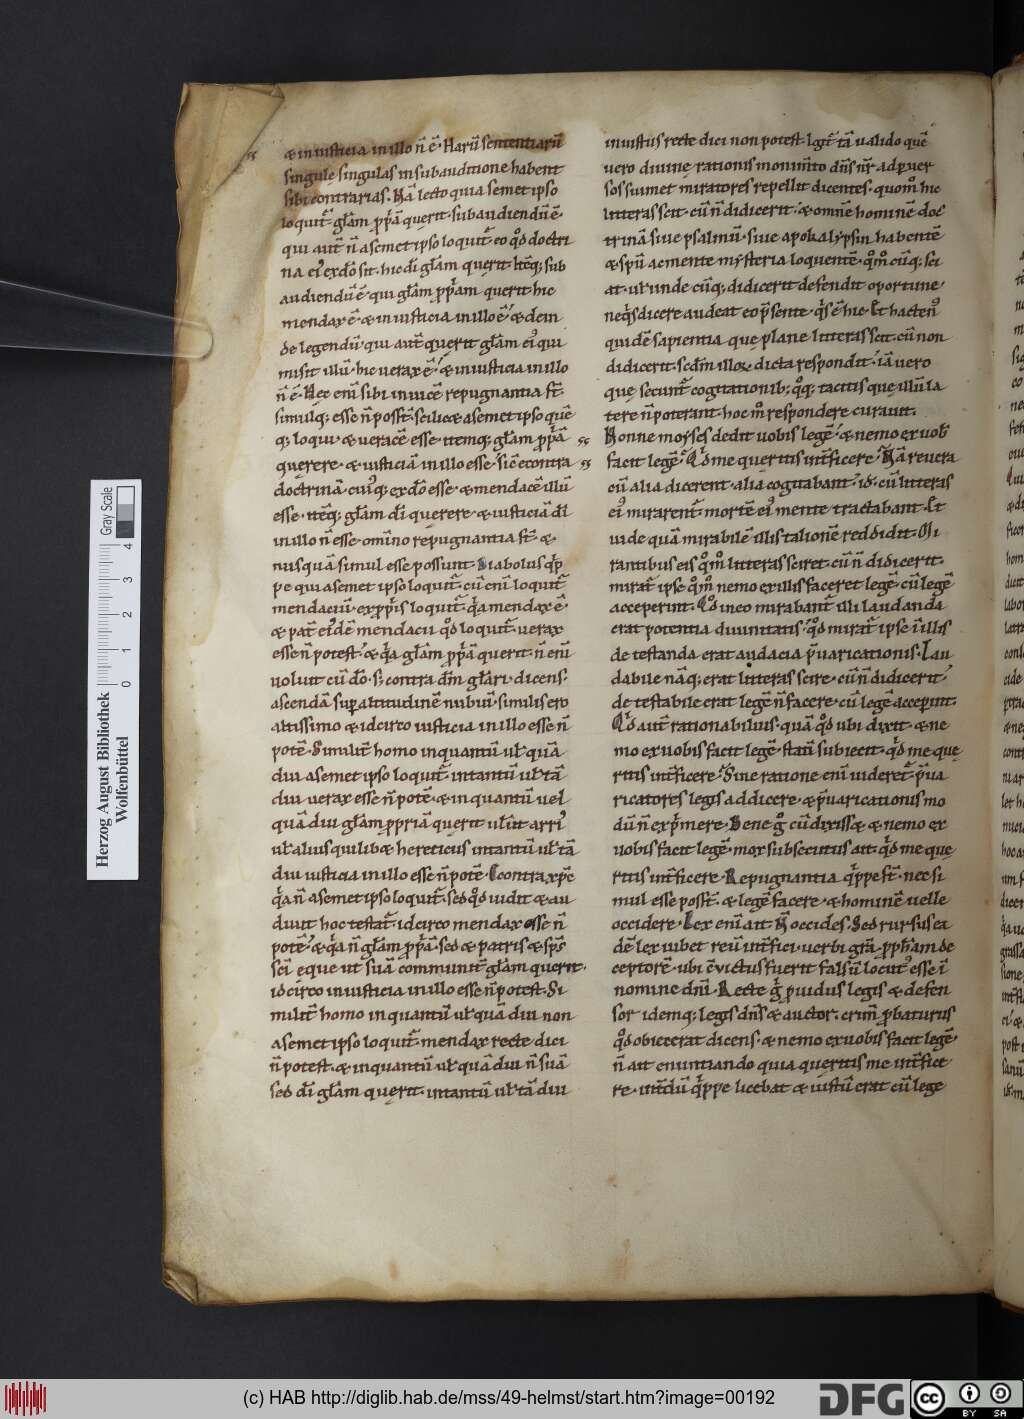 & iniusticia in illo n̄ ē. Harū sententiarū
singulę singulas in subauditione habent
sibi contrarias. Nā lecto quia semet ipso
loquit̄ gl̄am p̄priā querit. subaudiendū ē.
qui aut̄ n̄ a semet ipso loquit̄ eo qd̄ doctri
na ei' ex dō sit. hic dī gl̄am querit. Itēq; sub
audiendū ē. qui gl̄am p̄priam querit hic
mendax ē. & iniusticia in illo ē. & dein
de legendū qui autē querit gl̄am ei' qui
misit illū. hic uerax ē. & iniusticia in illo
n̄ ē. Nec enī sibi inuicē repugnantia st̄.
simulq; esse n̄ posst̄. scilic& a semet ipso quē
q; loqui & ueracē esse. itemq; gl̄am p̄priā
querere. & iusticiā in illo esse. sic̄ econtra
doctrinā cui'q; ex dō esse. & mendacē illū
esse. itēq; gl̄am dī querere. & iusticiā dī
in illo n̄ esse. omīno repugnantia st̄. &
nusquā simul esse possunt. Diabolus qp̄
pe qui a semet ipso loquit̄. cū enī loquit̄
mendaciū. ex p̄priis loquit̄. qa mendax ē.
& pat̄ ei'dē mendacii qd̄ loquit̄. uerax
esse n̄ potest. & qa gl̄am p̄priā querit. n̄ enī
uoluit cū dō. s; contra dm̄ gl̄ari. dicens.
ascendā sup altitudinē nubiū. similis ero
altissimo & idcirco iusticia in illo esse n̄
potē. Similit̄ homo inquantū ul' quā
diu a semet ipso loquit̄. intantū ul' tā
diu uerax esse n̄ potē. & inquantū uel
quā diu gl̄am p̄priā querit. ul'ut arri'
ul' alius quilib& hereticus intantū ul' tā
diu iusticia in illo esse n̄ potē. Econtra xp̄c
qa n̄ a semet ipso loquit̄. sed qd̄ uidit & au
diuit hoc testat̄. idcirco mendax esse n̄
potē. & qa n̄ gl̄am p̄priā. sed & patris & sp̄s
sc̄i eque ut suā communit̄ gl̄am querit.
idcirco iniusticia in illo esse n̄ potest. Si
milit̄ homo inquantū ul' quā diu non
a semet ipso loquit̄. mendax recte dici
n̄ potest. & inquantū ul' quā diu n̄ suā
sed dī gl̄am querit. intantū ul' tā diu
iniustus recte dici non potest. Igit̄ tā ualido quē
uero diuinę rationis monim̄to dn̄s nr̄ aduer
sos sui met miratores repellit dicentes. quom̊ hic
litteras scit. cū n̄ didicerit. & omnē hominē doc
trinā siue psalmū. siue apokalypsin habentē
& spū ac mente mysteria loquentē. qm̊ cūq; sci
at. ul' unde cūq; didicerit defendit oportune
neq's dicere audeat eo p̄sente. q's ē hic. Et hacten'
quidē sapientia que plane litteras scit. cū non
didicerit. scdm̄ illoꝝ dicta respondit. iā uero
que secunt̄ cogitationib; qq; tacitis que illū la
tere n̄ poterant. hoc m̊ respondere curauit.
Nonne moyses dedit uobis legē. & nemo ex uob'
facit legē. Qd me queritis int̄ficere. Nā reuera
cū alia dicerent. alia cogitabant. id. cū litteras
ei' mirarent̄. mortē ei' mente tractabant. Et
uide quā mirabilē illis talionē reddidit. Mi
rantibus eis qm̊ litteras sciret. cū n̄ didicerit.
mirat̄ ipse qm̊ nemo ex illis faceret legē. cū legē
acceperint. Qd in eo mirabant̄ illi laudanda
erat potentia diuinitatis. qd̄ mirat̄ ipse in illis
detestanda erat audacia p̄uaricationis. Lau
dabile nāq; erat litteras scire. cū n̄ didicerit.
detestabile erat legē n̄ facere. cū legē acceperint.
Qd aut̄ rationabilius. quā qd̄ ubi dixit. & ne
mo ex uobis facit legē. statī subiecit. qd me que
ritis int̄ficere. Sine ratione enī uideret̄ p̄ua
ricatores legis addicere. & p̄uaricationis mo
dū n̄ exp̄mere. Bene g̊ cū dixiss& & nemo ex
uobis facit legē. mox subsecutus ait. qd me que
ritis int̄ficere. Repugnantia qp̄pe st̄. nec si
mul esse posst̄. & legē facere. & hominē uelle
occidere. Lex enī ait. N̄ occides. Sed rursus ea
dē lex iubet reū int̄fici. uerbi gr̄a. pp̄h̄am de
ceptorē. ubi cōuictus fuerit falsū locut' esse ī
nomine dn̄i. Recte g̊ puidus legis & defen
sor. idemq; legis dn̄s & auctor. crim̄ p̄baturus
qd̄ obicerat dicens. & nemo ex uobis facit legē.
n̄ ait enuntiando quia queritis me int̄fice
re. int̄dū qp̄pe licebat & iustū erat cū lege
Herzog August Bibliothek
Wolfenbüttel
0 1 2 3 4
Gray Scale
(c) HAB http://diglib.hab.de/mss/49-helmst/start.htm?image=00192
DFG
CC BY SA